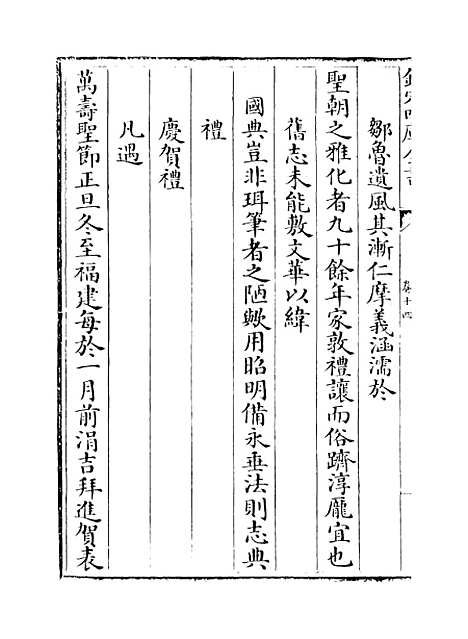 鄒魯遺風其漸仁摩義涵濡於
聖朝之雅化者九十餘年家敦禮讓而俗躋淳龐宜也
舊志未能敷文華以緯
國典豈非珥筆者之陋歟用昭明備永垂法則志典
禮
慶賀禮
凡遇
萬壽聖節正旦冬至福建每於一月前涓吉拜進賀表
卷十四